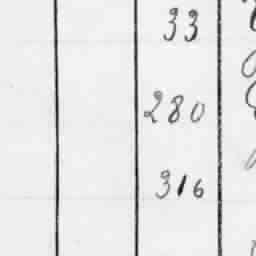 33
280
316